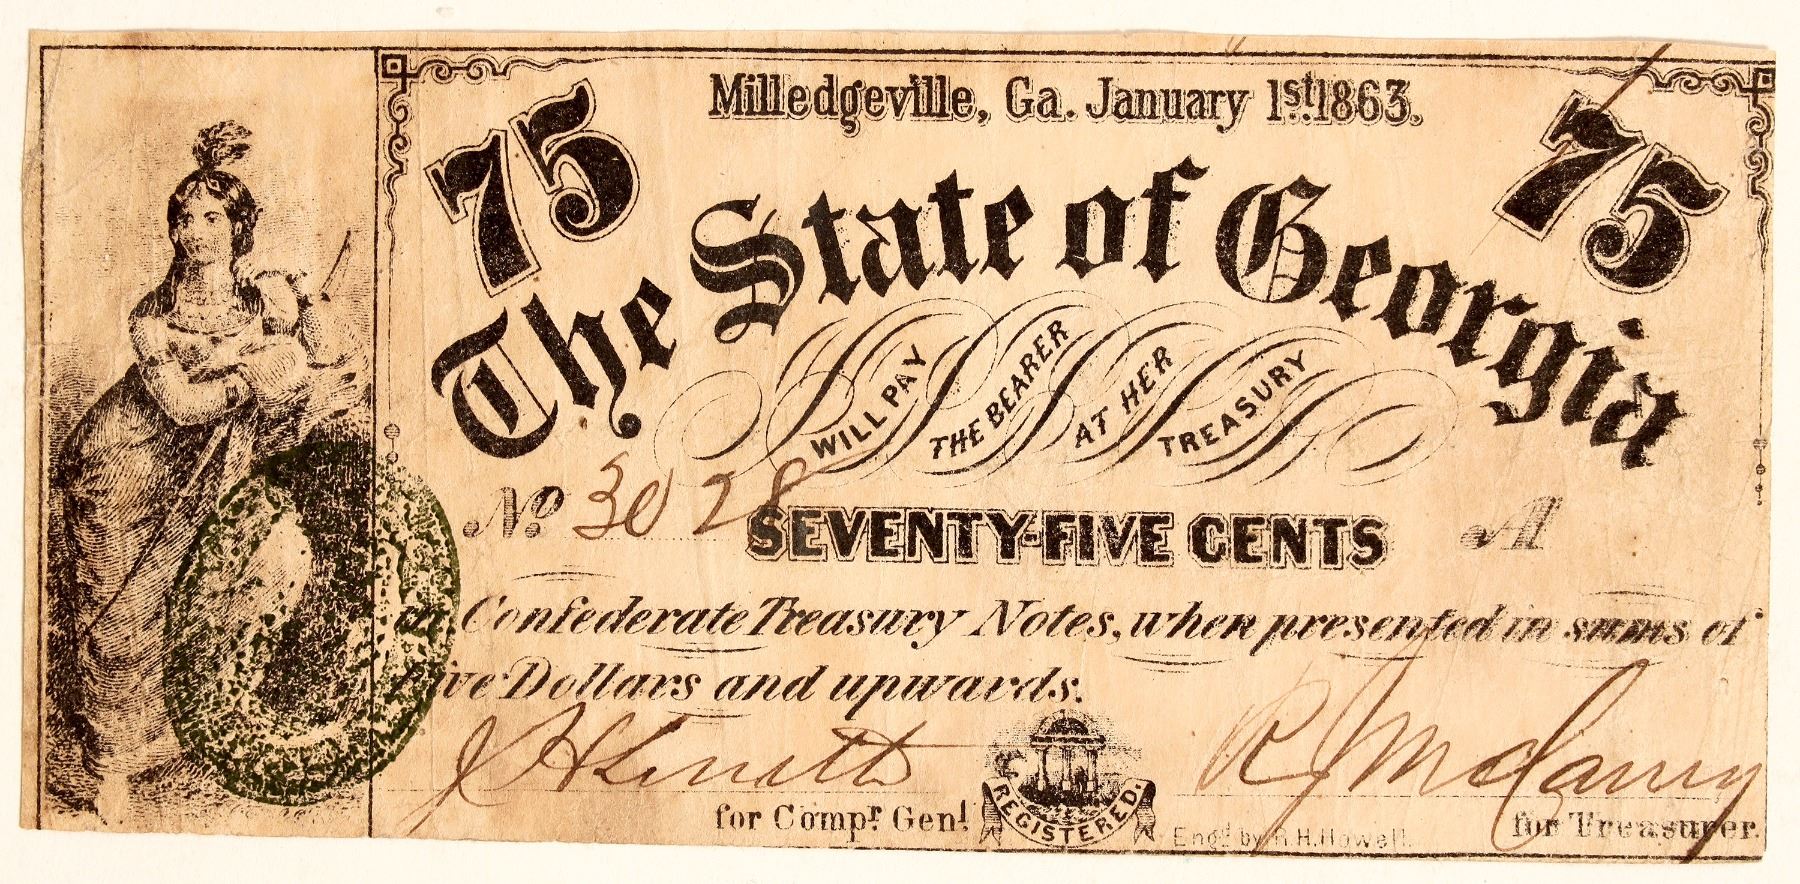 Milledgeville, Ga. January 1st. 1863.
75
75
The State of Georgia
WILL PAY THE BEARER AT HER TREASURY
No. 3028
SEVENTY-FIVE CENTS
A
in Confederate Treasury Notes, when presented in sums of
Five Dollars and upwards.
for Compr. Genl.
REGISTERED.
Engd. by R.H.Howell.
for Treasurer.